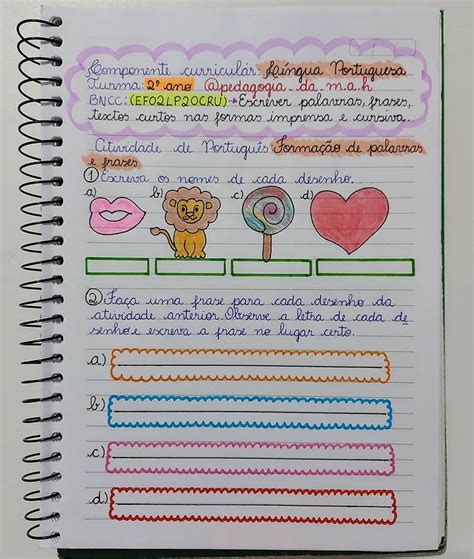 Componente curricular: Língua Portuguesa
Turma: 2º ano @pedagogia_da_m.a.h
BNCC: (EF02LP20CRU) → Escrever palavras, frases,
textos curtos nas formas imprensa e cursiva.
Atividade de Português: Formação de palavras
e frases
1 Escreva os nomes de cada desenho.
a) b) c) d)
2 Faça uma frase para cada desenho da
atividade anterior. Observe a letra de cada de
senho e escreva a frase no lugar certo.
a)
b)
c)
d)